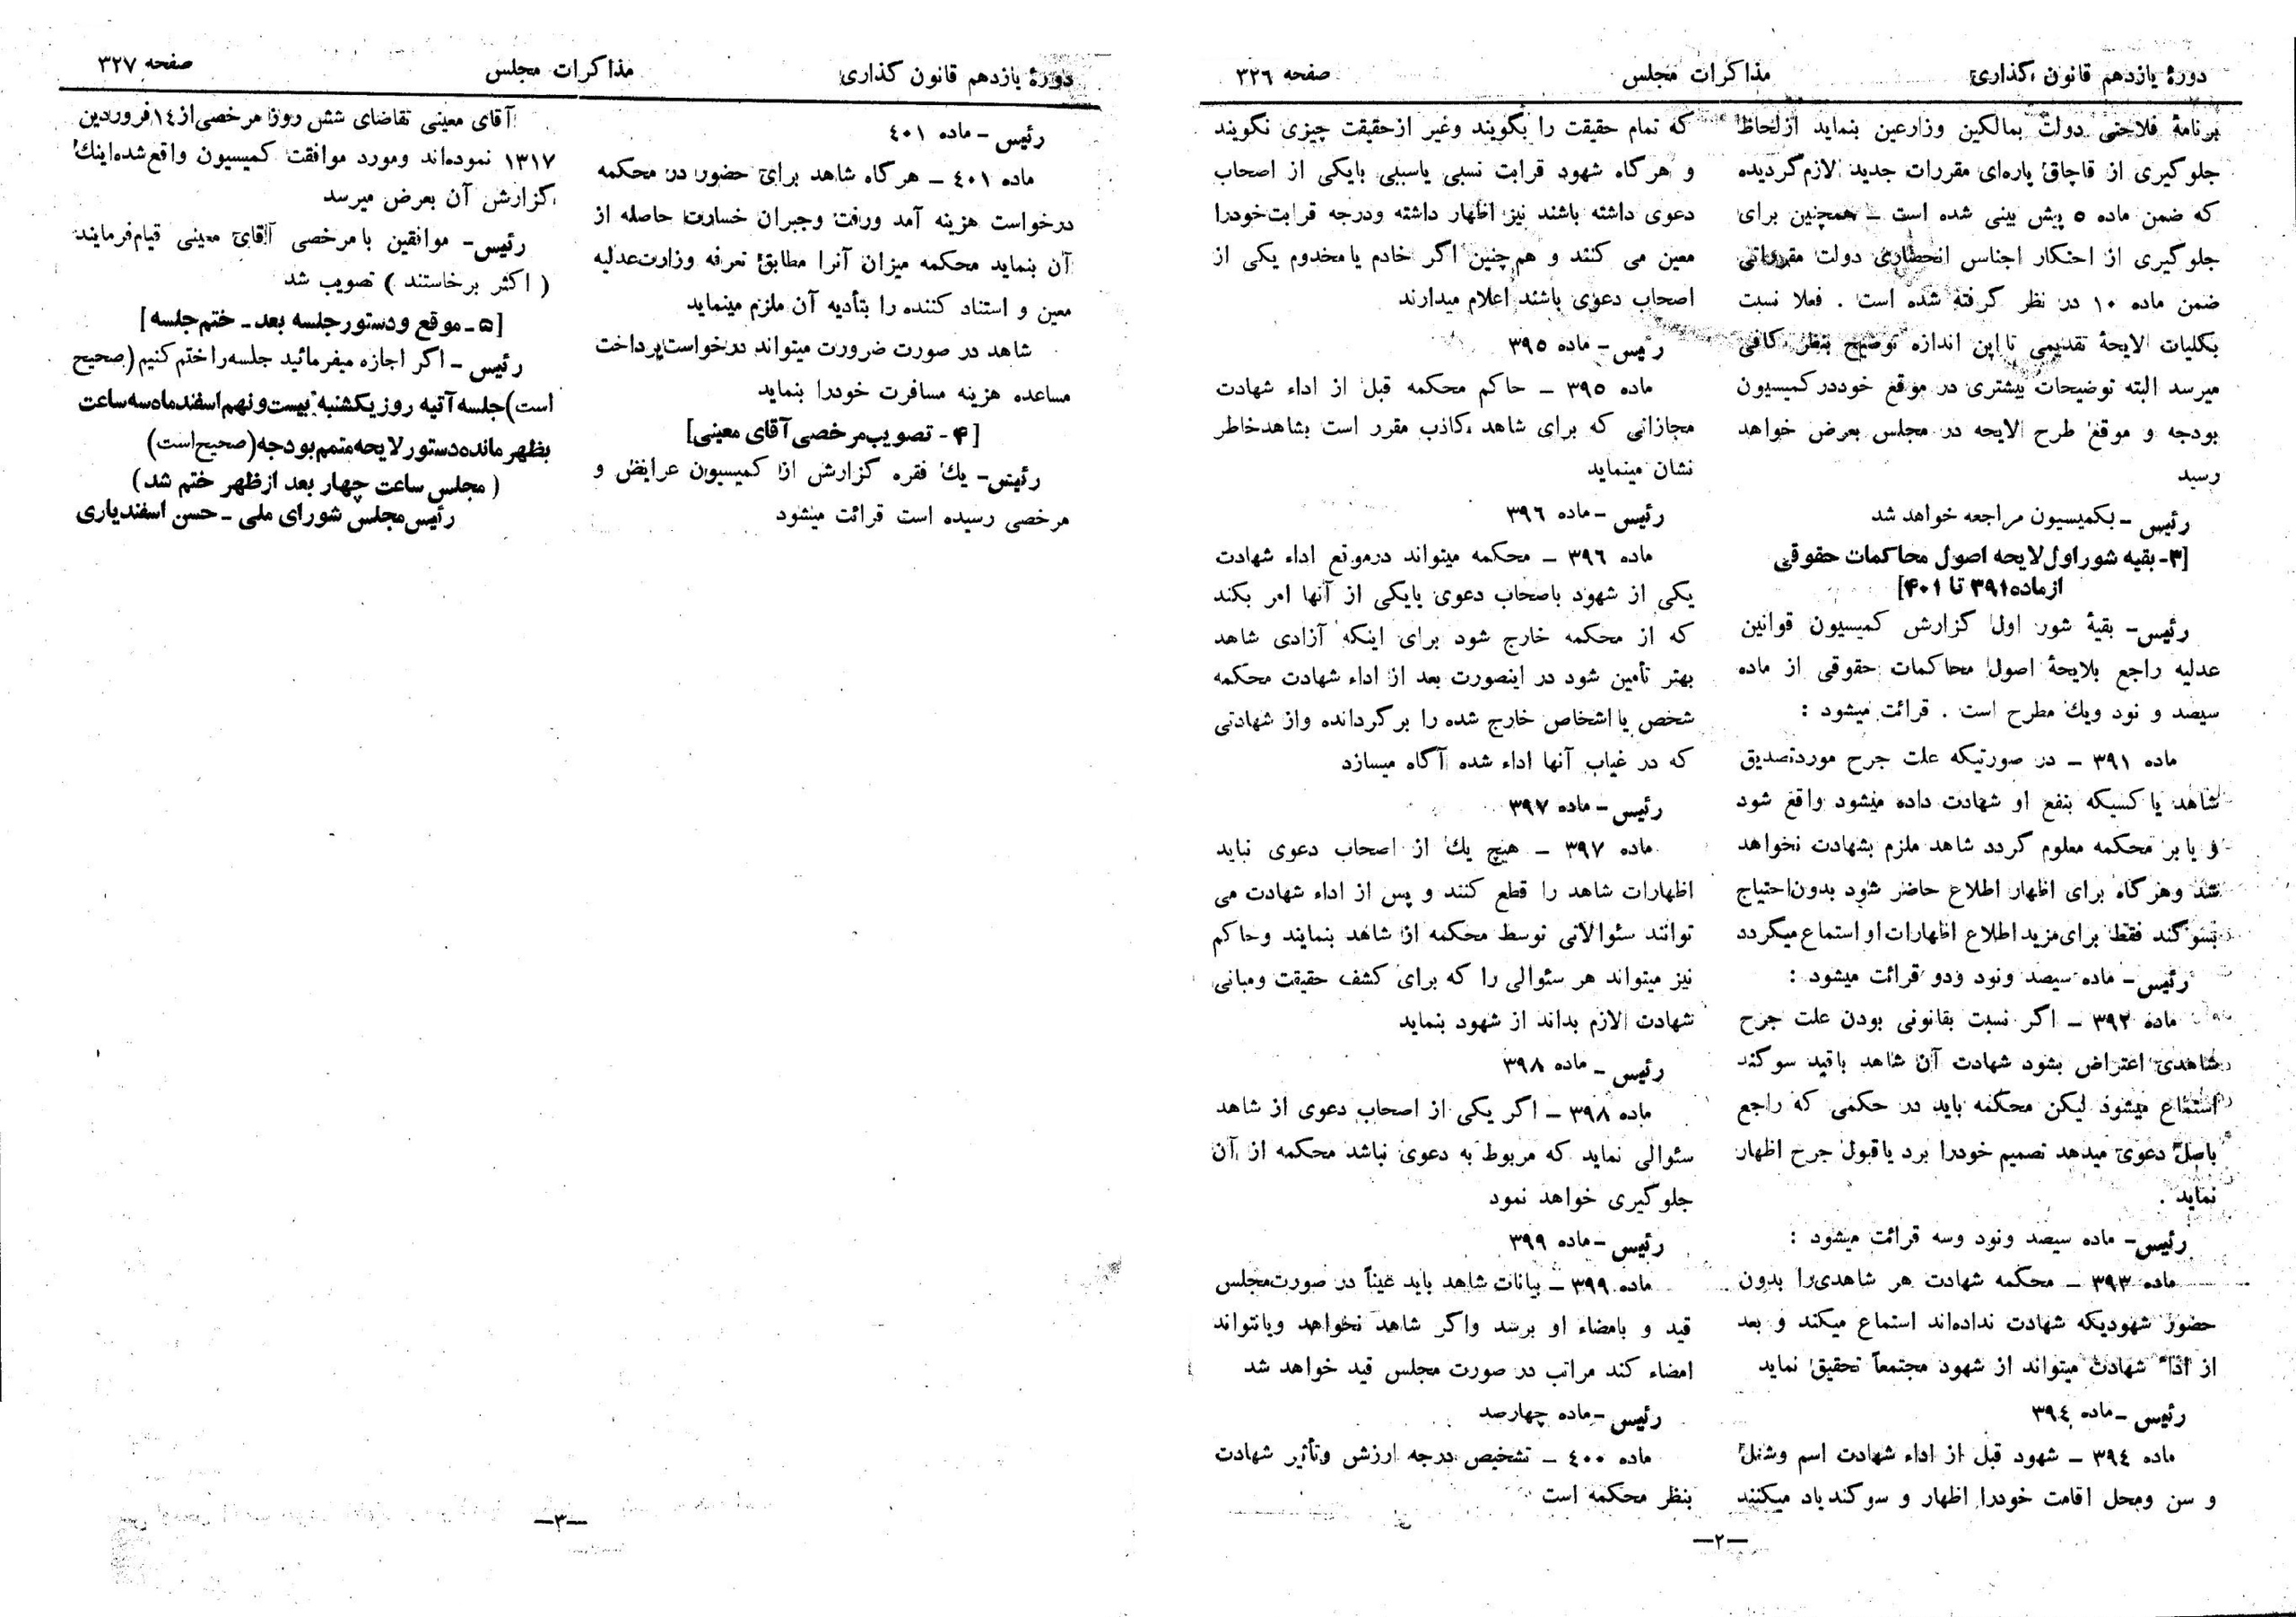 دورهٔ یازدهم قانون گذاری
مذاکرات مجلس
صفحه ۳۲۶
برنامهٔ فلاحتی دولت بمالکین وزارعین بنماید ازلحاظ
جلوگیری از قاچاق پاره‌ای مقررات جدید لازم گردیده
که ضمن ماده ۵ پیش بینی شده است ـ همچنین برای
جلوگیری از احتکار اجناس انحصاری دولت مقرراتی
ضمن ماده ۱۰ در نظر گرفته شده است . فعلا نسبت
بکلیات لایحهٔ تقدیمی تا این اندازه توضیح بنظر کافی
میرسد البته توضیحات بیشتری در موقع خوددرکمیسیون
بودجه و موقع طرح لایحه در مجلس بعرض خواهد
رسید
رئیس ـ بکمیسیون مراجعه خواهد شد
[۳ـ بقیه شور اول لایحه اصول محاکمات حقوقی
ازماده ۳۹۱ تا ۴۰۱]
رئیس ـ بقیهٔ شور اول گزارش کمیسیون قوانین
عدلیه راجع بلایحهٔ اصول محاکمات حقوقی از ماده
سیصد و نود ویك مطرح است . قرائت میشود :
ماده ۳۹۱ ـ در صورتیکه علت جرح موردتصدیق
شاهد یا کسیکه بنفع او شهادت داده میشود واقع شود
و یا بر محکمه معلوم گردد شاهد ملزم بشهادت نخواهد
شد وهرگاه برای اظهار اطلاع حاضر شود بدون احتیاج
بسوگند فقط برای مزید اطلاع اظهارات او استماع میگردد
رئیس ـ ماده سیصد ونود ودو قرائت میشود :
ماده ۳۹۲ ـ اگر نسبت بقانونی بودن علت جرح
شاهدی اعتراض بشود شهادت آن شاهد باقید سوگند
استماع میشود لیکن محکمه باید در حکمی که راجع
باصل دعوی میدهد تصمیم خودرا برد یاقبول جرح اظهار
نماید .
رئیس ـ ماده سیصد ونود وسه قرائت میشود :
ماده ۳۹۳ ـ محکمه شهادت هر شاهدی را بدون
حضور شهودیکه شهادت نداده‌اند استماع میکند و بعد
از اداء شهادت میتواند از شهود مجتمعاً تحقیق نماید
رئیس ـ ماده ۳۹٤
ماده ۳۹٤ ـ شهود قبل از اداء شهادت اسم وشغل
و سن ومحل اقامت خودرا اظهار و سوگند یاد میکنند
که تمام حقیقت را بگویند وغیر ازحقیقت چیزی نگویند
و هرگاه شهود قرابت نسبی یاسببی بایکی از اصحاب
دعوی داشته باشند نیز اظهار داشته ودرجه قرابت خودرا
معین می کنند و هم چنین اگر خادم یا مخدوم یکی از
اصحاب دعوی باشند اعلام میدارند
رئیس ـ ماده ۳۹۵
ماده ۳۹۵ ـ حاکم محکمه قبل از اداء شهادت
مجازاتی که برای شاهد کاذب مقرر است بشاهدخاطر
نشان مینماید
رئیس ـ ماده ۳۹٦
ماده ۳۹٦ ـ محکمه میتواند درموقع اداء شهادت
یکی از شهود باصحاب دعوی یایکی از آنها امر بکند
که از محکمه خارج شود برای اینکه آزادی شاهد
بهتر تأمین شود در اینصورت بعد از اداء شهادت محکمه
شخص یا اشخاص خارج شده را برگردانده واز شهادتی
که در غیاب آنها اداء شده آگاه میسازد
رئیس ـ ماده ۳۹۷
ماده ۳۹۷ ـ هیچ یك از اصحاب دعوی نباید
اظهارات شاهد را قطع کنند و پس از اداء شهادت می
توانند سئوالاتی توسط محکمه از شاهد بنمایند وحاکم
نیز میتواند هر سئوالی را که برای کشف حقیقت ومبانی
شهادت لازم بداند از شهود بنماید
رئیس ـ ماده ۳۹۸
ماده ۳۹۸ ـ اگر یکی از اصحاب دعوی از شاهد
سئوالی نماید که مربوط به دعوی نباشد محکمه از آن
جلوگیری خواهد نمود
رئیس ـ ماده ۳۹۹
ماده ۳۹۹ ـ بیانات شاهد باید عیناً در صورت مجلس
قید و بامضاء او برسد واگر شاهد نخواهد ویانتواند
امضاء کند مراتب در صورت مجلس قید خواهد شد
رئیس ـ ماده چهارصد
ماده ٤۰۰ ـ تشخیص درجه ارزش وتأثیر شهادت
بنظر محکمه است
ـ۲ـ
دورهٔ یازدهم قانون گذاری
مذاکرات مجلس
صفحه ۳۲۷
رئیس ـ ماده ٤۰۱
ماده ٤۰۱ ـ هرگاه شاهد برای حضور در محکمه
درخواست هزینه آمد ورفت وجبران خسارت حاصله از
آن بنماید محکمه میزان آنرا مطابق تعرفه وزارت عدلیه
معین و استناد کننده را بتأدیه آن ملزم مینماید
شاهد در صورت ضرورت میتواند درخواست پرداخت
مساعده هزینه مسافرت خودرا بنماید
[۴ـ تصویب مرخصی آقای معینی]
رئیس ـ یك فقره گزارش از کمیسیون عرایض و
مرخصی رسیده است قرائت میشود
آقای معینی تقاضای شش روز مرخصی از ۱٤ فروردین
۱۳۱۷ نموده‌اند ومورد موافقت کمیسیون واقع شده اینك
گزارش آن بعرض میرسد
رئیس ـ موافقین با مرخصی آقای معینی قیام فرمایند
( اکثر برخاستند ) تصویب شد
[۵ـ موقع و دستور جلسه بعد ـ ختم جلسه]
رئیس ـ اگر اجازه میفرمائید جلسه را ختم کنیم (صحیح
است) جلسه آتیه روز یکشنبه بیست ونهم اسفندماه سه ساعت
بظهر مانده دستور لایحه متمم بودجه (صحیح است)
( مجلس ساعت چهار بعد ازظهر ختم شد )
رئیس مجلس شورای ملی ـ حسن اسفندیاری
ـ۳ـ